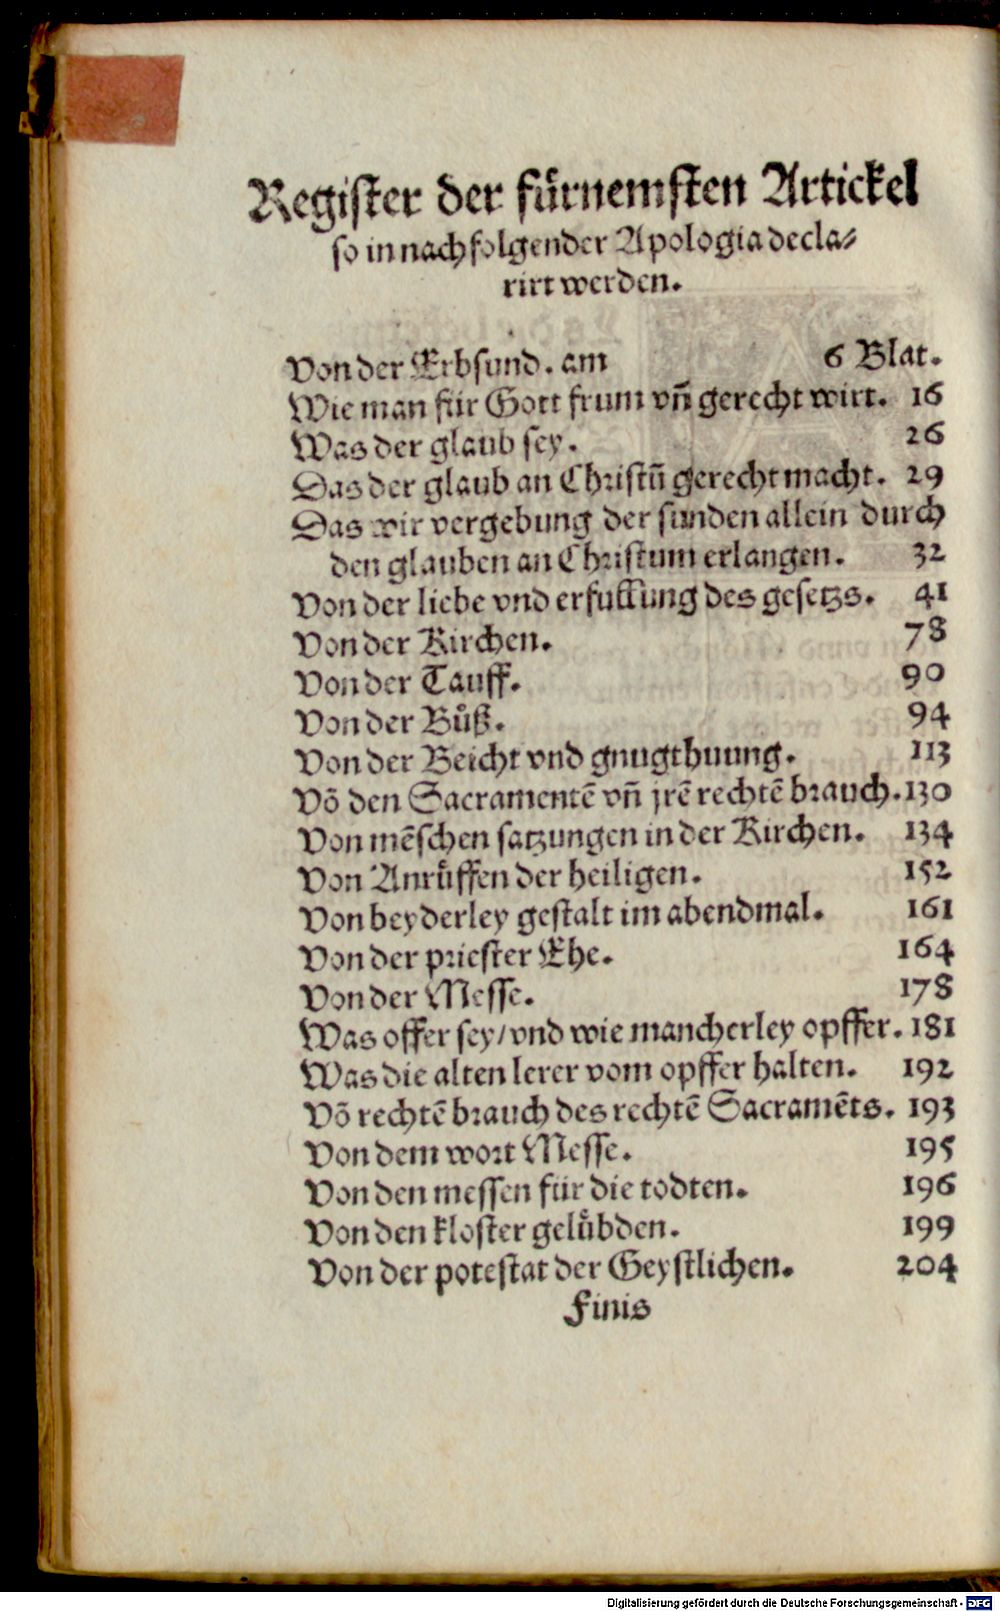 Register der fürnemsten Artickel
so in nachfolgender Apologia decla⸗
rirt werden.
Von der Erbsund. am 6 Blat.
Wie man für Gott frum vñ gerecht wirt. 16
Was der glaub sey. 26
Das der glaub an Christũ gerecht macht. 29
Das wir vergebung der sunden allein durch
den glauben an Christum erlangen. 32
Von der liebe vnd erfullung des gesetzs. 41
Von der Kirchen. 78
Von der Tauff. 90
Von der Bůß. 94
Von der Beicht vnd gnugthuung. 113
Võ den Sacramentẽ vñ jrẽ rechtẽ brauch. 130
Von mẽschen satzungen in der Kirchen. 134
Von Anrůffen der heiligen. 152
Von beyderley gestalt im abendmal. 161
Von der priester Ehe. 164
Von der Messe. 178
Was offer sey/ vnd wie mancherley opffer. 181
Was die alten lerer vom opffer halten. 192
Võ rechtẽ brauch des rechtẽ Sacramẽts. 193
Von dem wort Messe. 195
Von den messen für die todten. 196
Von den kloster gelübden. 199
Von der potestat der Geystlichen. 204
Finis
Digitalisierung gefördert durch die Deutsche Forschungsgemeinschaft - DFG